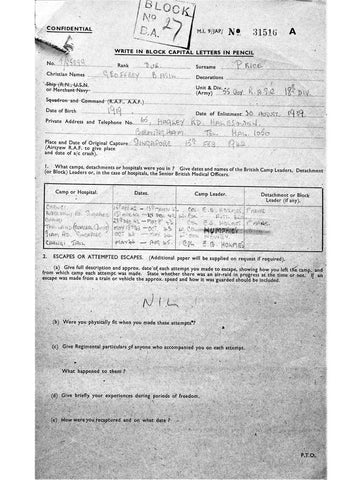 BLOCK
No
B.A. 27
CONFIDENTIAL
M.I. 9/JAP/ No 31516 A
WRITE IN BLOCK CAPITAL LETTERS IN PENCIL
No. Rank Surname PRICE
Christian Names GEOFFREY Decorations
Ship (R.N., U.S.N. or Merchant Navy) Unit & Div. (Army) R.A.S.C. 18th Div.
Squadron and Command (R.A.F., A.A.F.)
Date of Birth 1919 Date of Enlistment 30 AUGUST 1939
Private Address and Telephone No. HAGLEY RD HALESOWEN
BIRMINGHAM TEL. HAL. 1060
Place and Date of Original Capture SINGAPORE 15th FEB. 1942
(Answer R.A.F. to give place and date of a/c crash).
1. What camps, detachments or hospitals were you in? Give dates and names of the British Camp Leaders, Detachment (or Block) Leaders or, in case of the hospitals, the Senior British Medical Officers.
Camp or Hospital. Dates. Camp Leader. Detachment or Block Leader (if any).
CHANGI COL. E.B. HOLMES
COL.
CHANGI HOLMES
HUMPHRIES
CHANGI JAIL COL. E.B. HOLMES
2. ESCAPES OR ATTEMPTED ESCAPES. (Additional paper will be supplied on request if required).
(a) Give full description and approx. date of each attempt you made to escape, showing how you left the camp, and from which camp each attempt was made. State whether there was an air-raid in progress at the time or not. If an escape was made from a train or vehicle the approx. speed and how it was guarded should be included.
NIL
(b) Were you physically fit when you made these attempts?
(c) Give Regimental particulars of anyone who accompanied you on each attempt.
What happened to them?
(d) Give briefly your experiences during periods of freedom.
(e) How were you recaptured and on what date?
P.T.O.